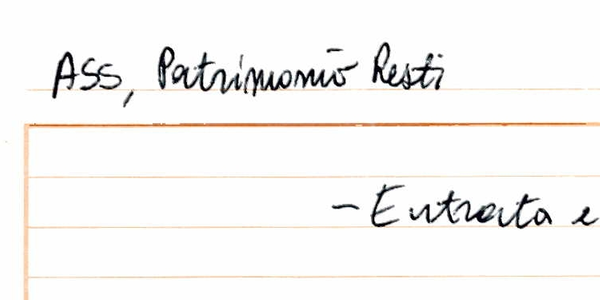 ASS, Patrimonio Resti
- Entrata e